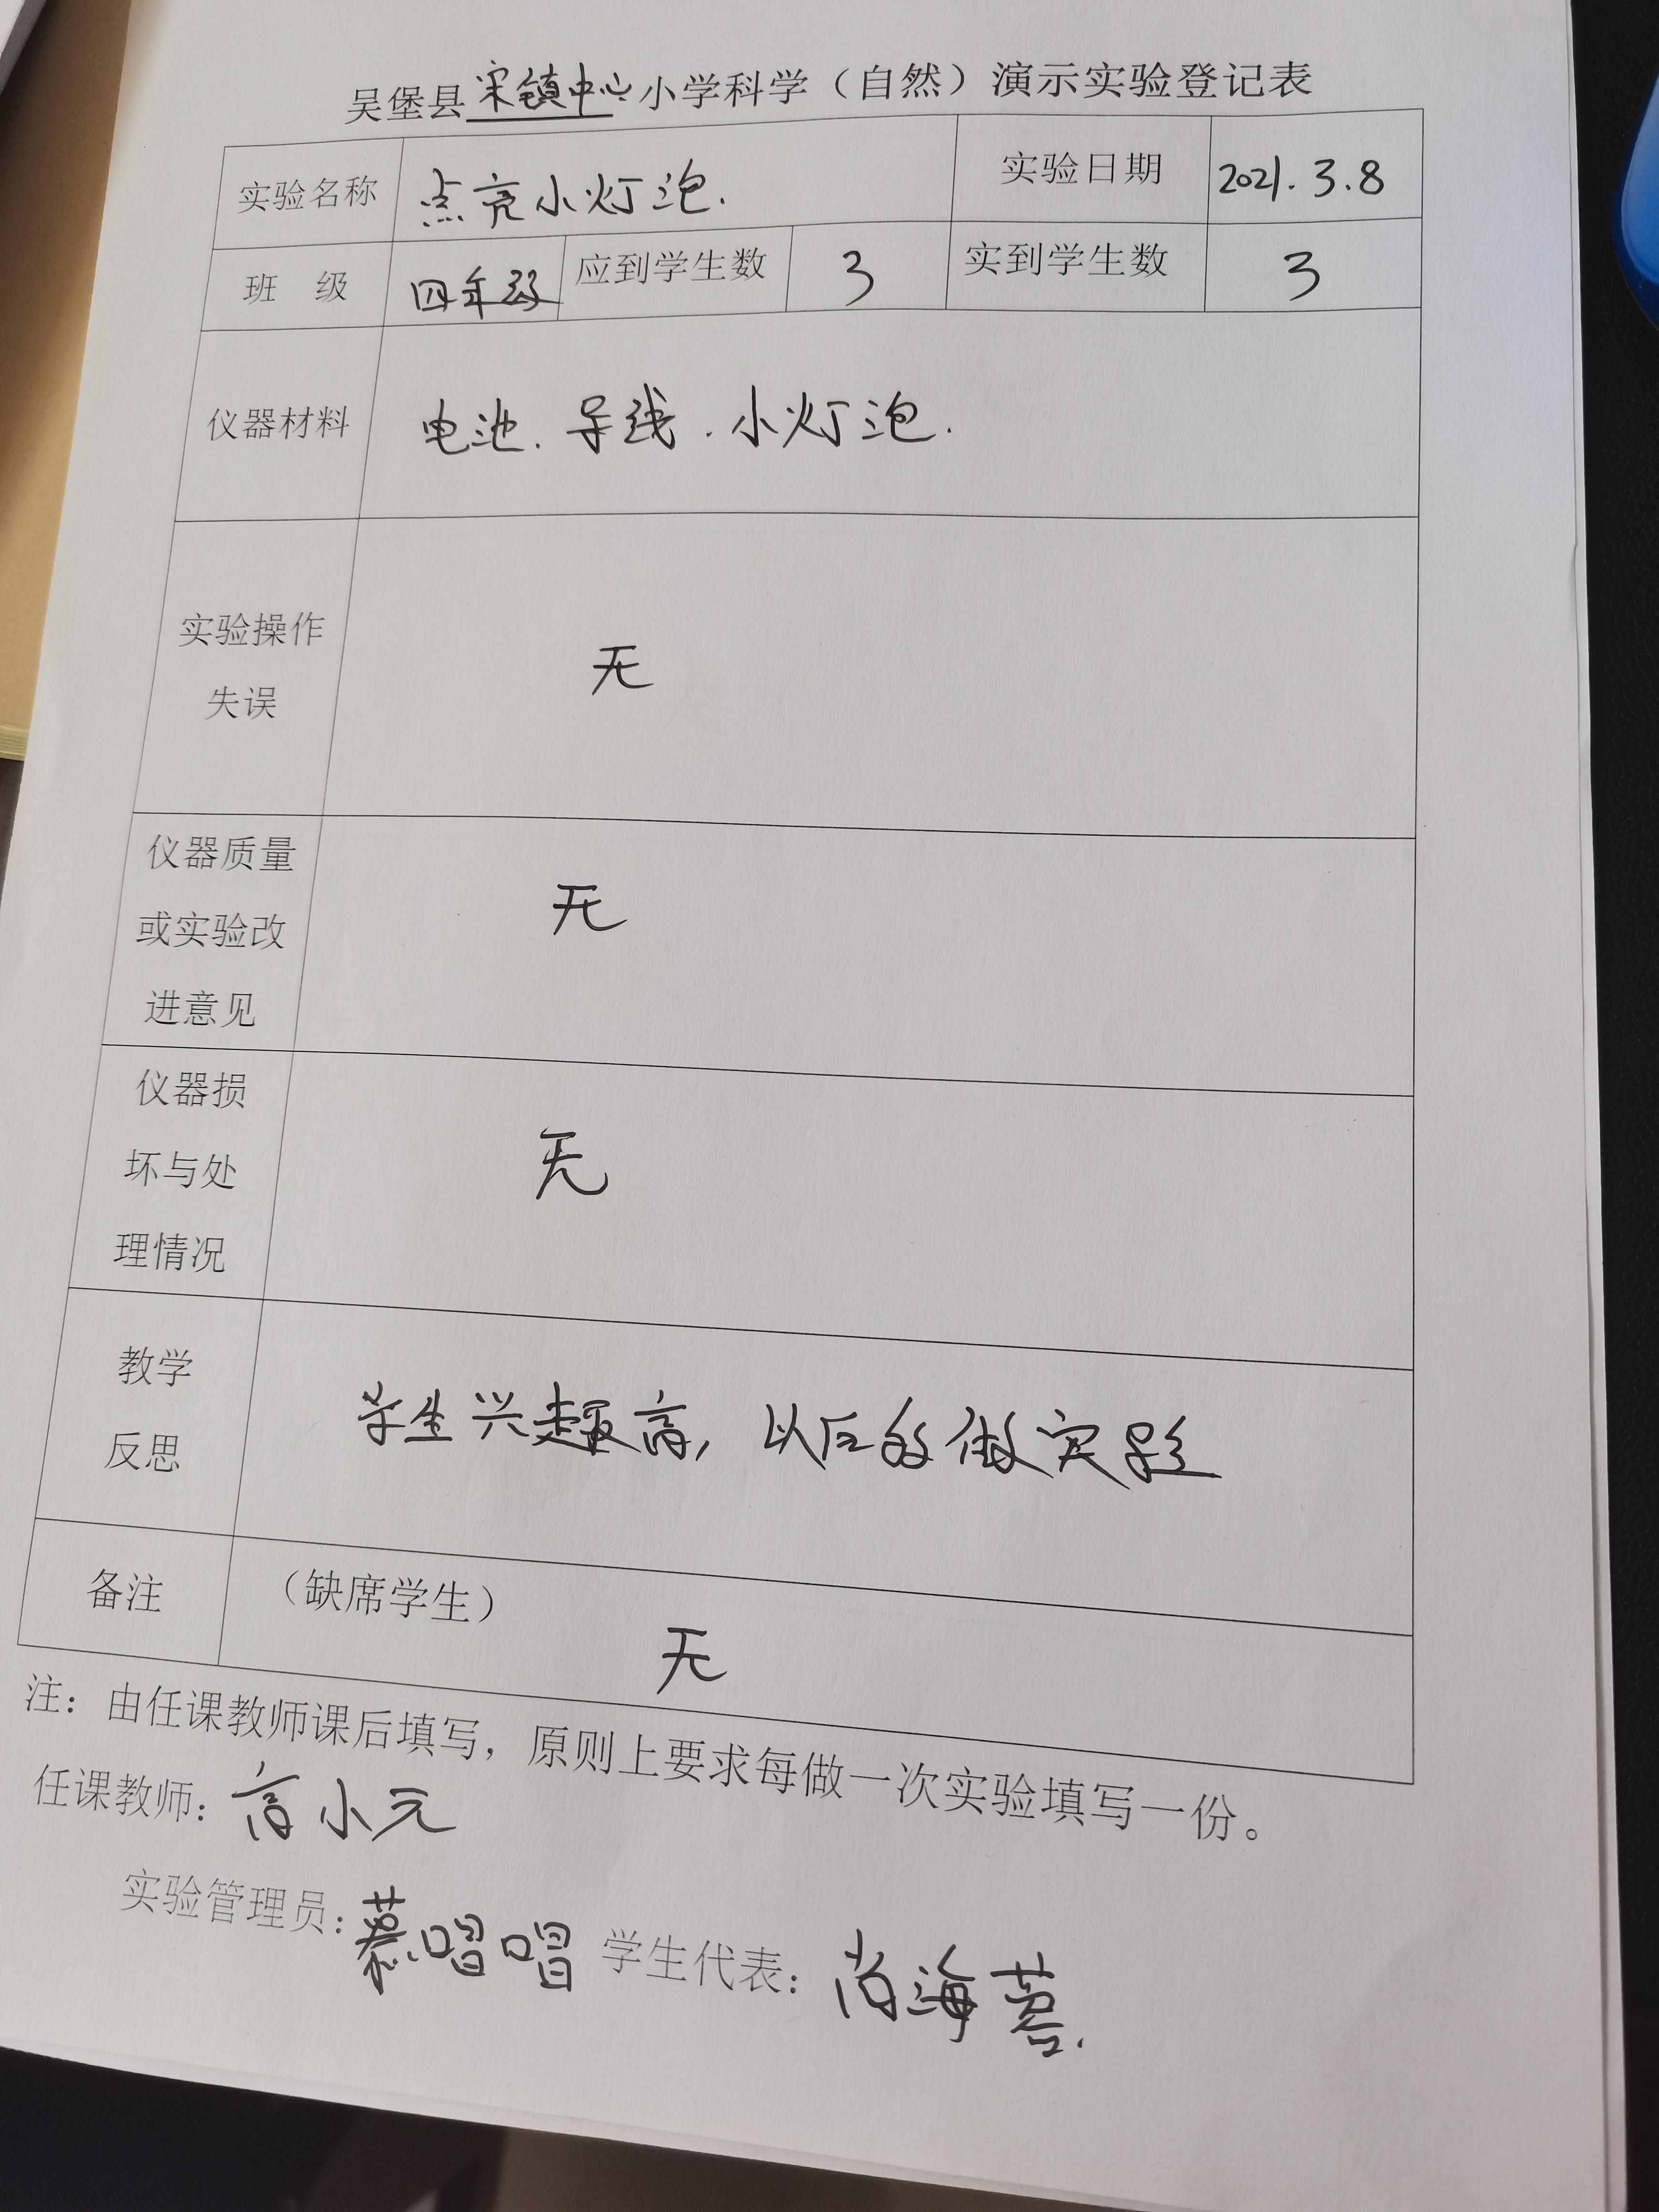 吴堡县宋镇中心小学科学（自然）演示实验登记表
实验名称 点亮小灯泡. 实验日期 2021.3.8
班 级 四年级 应到学生数 3 实到学生数 3
仪器材料 电池.导线.小灯泡.
实验操作
失误
无
仪器质量
或实验改
进意见
无
仪器损
坏与处
理情况
无
教学
反思
学生兴趣高,以后多做实验
备注 （缺席学生）
无
注：由任课教师课后填写，原则上要求每做一次实验填写一份。
任课教师：高小元
实验管理员：慕唱唱 学生代表：尚海